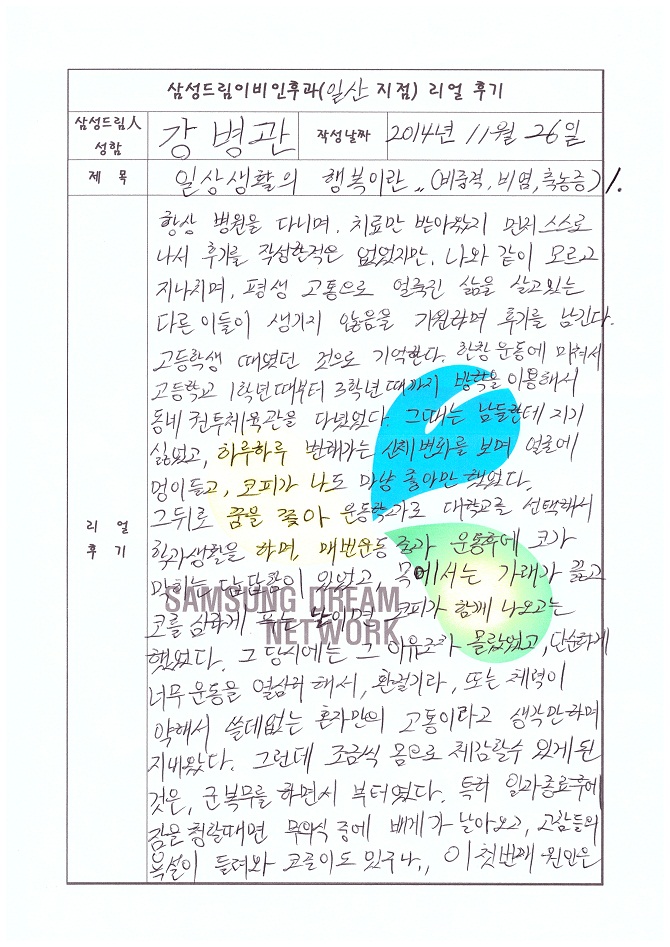 삼성드림이비인후과(일산 지점) 리얼 후기
삼성드림人 성함 강병관 작성날짜 2014년 11월 26일
제 목 일상생활의 행복이란,, (비중격, 비염, 축농증) 1.
리 얼 후 기
항상 병원을 다니며, 치료만 받아왔지 먼저 스스로
나서 후기를 작성한적은 없었지만, 나와 같이 모르고
지나치며, 평생 고통으로 얼룩진 삶을 살고있는
다른 이들이 생기지 않음을 기원하며 후기를 남긴다.
고등학생 때였던 것으로 기억한다. 한창 운동에 미쳐서
고등학교 1학년때부터 3학년때까지 방학을 이용해서
동네 권투체육관을 다녔었다. 그때는 남들한테 지기
싫었고, 하루하루 변해가는 신체변화를 보며 얼굴에
멍이 들고, 코피가 나도 마냥 좋아만 했었다.
그뒤로 꿈을 쫓아 운동학과로 대학교를 선택해서
학과생활을 하며, 매번 운동 중과 운동후에 코가
막히는 답답함이 있었고, 목에서는 가래가 끓고
코를 심하게 푸는 날이면 코피가 함께 나오고는
했었다. 그 당시에는 그 이유조차 몰랐었고, 단순하게
너무 운동을 열심히 해서, 환절기라, 또는 체력이
약해서 쓸데없는 혼자만의 고통이라고 생각만하며
지내왔다. 그런데 조금씩 몸으로 체감할수 있게 된
것은, 군복무를 하면서 부터였다. 특히 일과종료후에
잠을 청할때면 무의식 중에 베게가 날아오고, 고참들의
욕설이 들려와 코골이도 있구나,, 이 첫번째 원인은
SAMSUNG DREAM
NETWORK